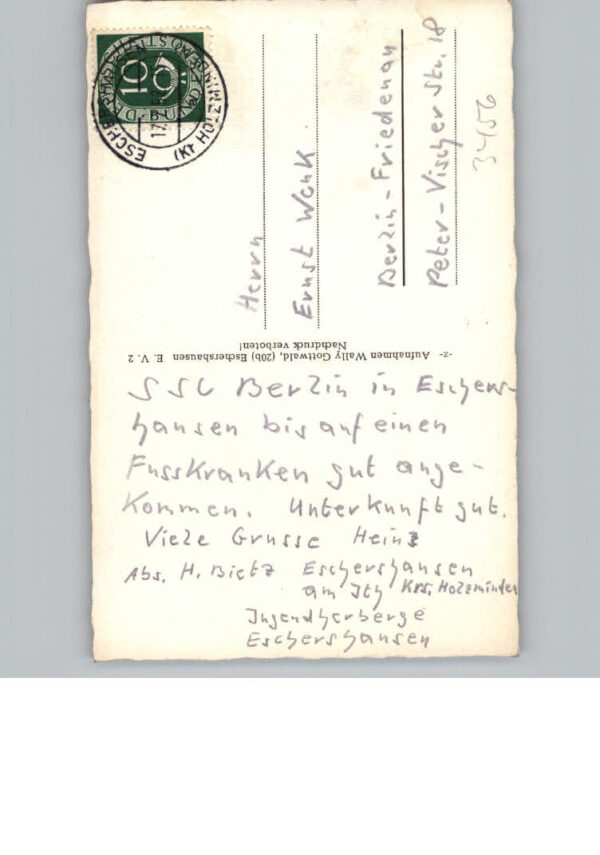 SSC Berlin in Eschers-
hausen bis auf einen
Fusskranken gut ange-
kommen. Unterkunft gut.
Viele Grüsse Heinz
Abs. H. Bietz Eschershausen
am Ith Krs. Holzminden
Jugendherberge
Eschershausen
-z- Aufnahmen Wally Gottwald, (20b) Eschershausen E. V. 2
Nachdruck verboten!
Herrn
Ernst Wonk.
Berlin-Friedenau
Peter-Vischer Str. 18
3456
DEUTSCHE BUNDESPOST
10